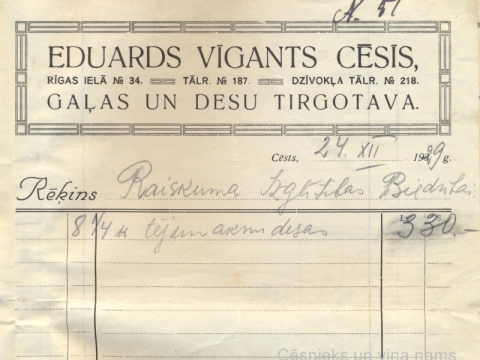 № 51
EDUARDS VĪGANTS CĒSĪS,
RĪGAS IELĀ № 34. TĀLR. № 187. DZĪVOKĻA TĀLR. № 218.
GAĻAS UN DESU TIRGOTAVA.
Cēsīs, 24. XII 1929 g.
Rēķins Raiskuma Izglītības Biedrībai
8 1/4 tējim desas 3 30.-
Cēsnieks un viņa nams